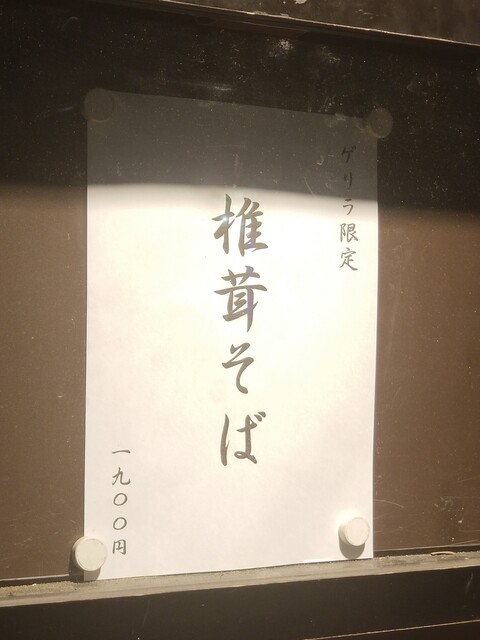 ゲリラ限定
椎茸そば
一九〇〇円